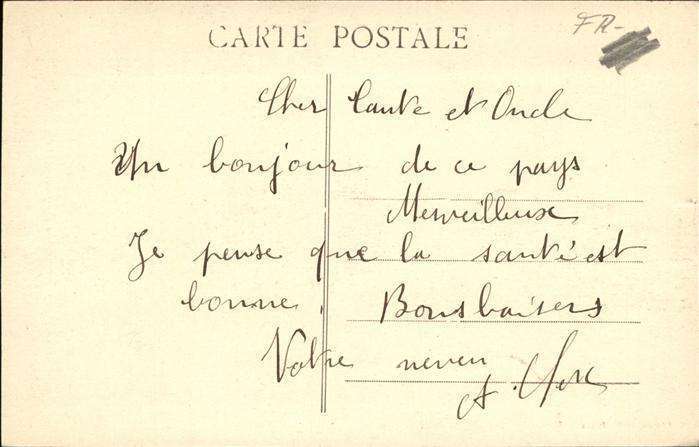 FR-
CARTE POSTALE
Cher Tante et Oncle
Un bonjour de ce pays
Merveilleux
Je pense que la santé est
bonne. Bons baisers
Votre neveu
A.